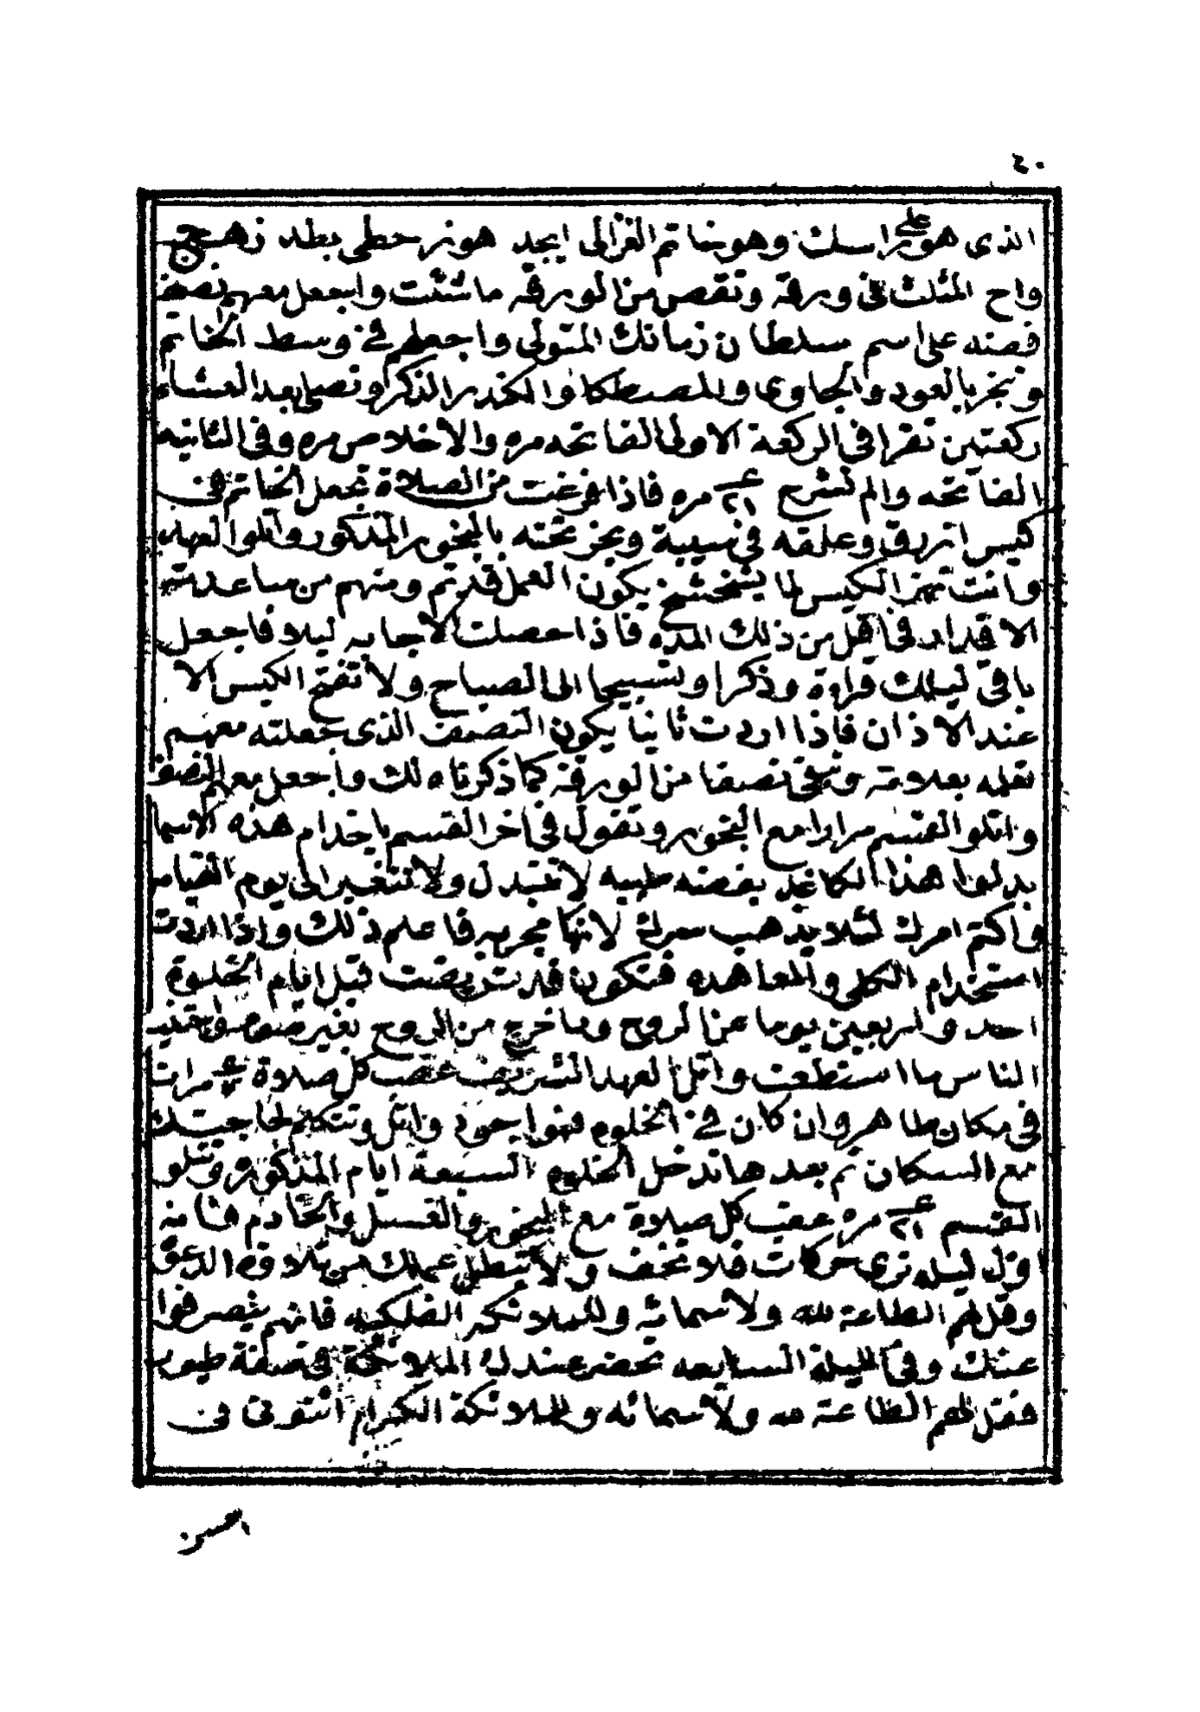 ٤٠
الذى هو على راسك وهو خاتم الغزالى ابجد هوز حطى بطد زهج
واح المثلث فى ورقه وتقص من الورقه ماشئت واجعل معهم نصف
فضه على اسم سلطان زمانك المتولى واجعلهم فى وسط الخاتم
وبخر بالعود والجاوى والمصطكا والكندر الذكر وتصلى بعد العشاء
ركعتين تقرا فى الركعة الاولى الفاتحه مره والاخلاص مره وفى الثانيه
الفاتحه والم نشرح ٢١ مره فاذا فرغت من الصلاة تجعل الخاتم فى
كيس ازرق وعلقه فى سيبة وبخر تحته بالبخور المذكور واتلوا العهد
وانت تهز الكيس لما يشخشخ يكون العمل قد تم ومنهم من ساعدته
الاقدار فى اقل من ذلك المده فاذا حصلت الاجابه ليلا فاجعل
باقى ليلك قراءة وذكرا وتسبيحا الى الصباح ولا تفتح الكيس الا
عند الاذان فاذا اردت ثانيا يكون النصف الذى جعلته معهم
تعلمه بعلامة وتبقى نصفا من الورقة كما ذكرناه لك واجعل معهم النصف
واتلو القسم مرارا مع البخور وتقول فى اخر القسم ياخدام هذه الاسما
بدلوا هذا الكاغد بفضه طيبه لا تتبدل ولا تتغير الى يوم القيامه
واكتم امرك لئلا يذهب سرك لانها مجربه فاعلم ذلك واذا اردت
استخدام الكلى والمعاهده فتكون قد تريضت قبل ايام الخلوة
احد واربعين يوما عن الروح وما خرج من الروح بغير صوم واجتنب
الناس ما استطعت واتل العهد الشريف عقب كل صلاة ٧ مرات
فى مكان طاهر وان كان فى الخلوه فهو اجود واتل وتتكلم لحاجتك
مع السكان ثم بعدها تدخل الخلوه السبعة ايام المذكوره وتتلو
القسم ٢١ مره عقب كل صلاة مع البخور والغسل والخادم فانه
اول ليله ترى حركات فلا تخف ولا تبطل عملك من تلاوة الدعوة
وقل لهم الطاعة لله ولاسمائه وللملائكه الفلكيه فانهم ينصرفوا
عنك وفى الليلة السابعه تحضر عندك الملائكة فى صفة طيور
فقل لهم الطاعة لله ولاسمائه وللملائكة الكرام ائتونى فى
احسن